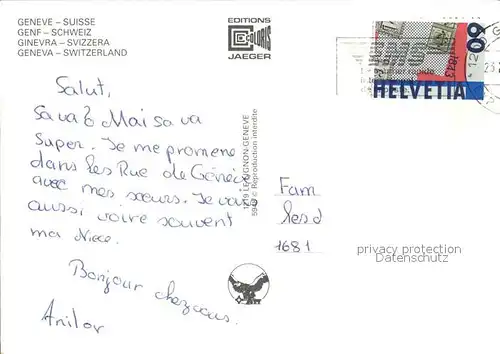 GENEVE – SUISSE
GENF – SCHWEIZ
GINEVRA – SVIZZERA
GENEVA – SWITZERLAND
EDITIONS
COLORIS
JAEGER
60
HELVETIA
Salut,
sa va? Mai sa va
Super. Je me promene
dans les Rue de Génève
avec mes sœurs. Je vais
aussi voire souvent
ma Niece.
Bonjour chez vous.
Anilor
1219 LE LIGNON-GENEVE
© Reproduction interdite
Fam
les d
1681
privacy protection
Datenschutz